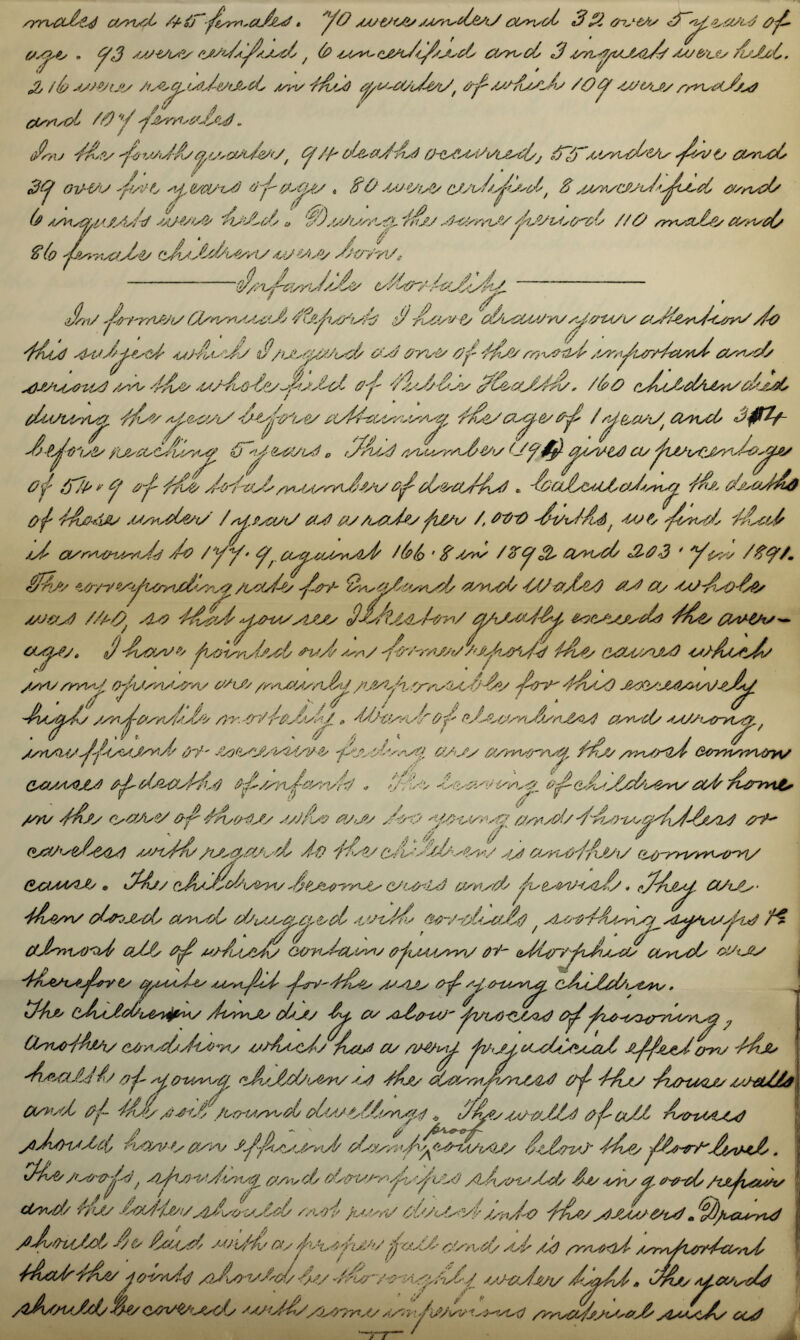 males and 45 females. 70 were under and 32 over 5 years of
age. 73 were certified, 6 uncertified and 3 inquests were held.
216 were registered in this quarter, of which 109 were males
and 107 females.
In the fourth quarter, 94 deaths occurred, 55 under five and
39 over five years of age. 80 were certified, 8 uncertified and
6 inquests were held. During the same period 110 male and
86 female children were born.
Infantile Mortality
In former Annual Reports I have drawn your attention to
this subject which I regard as one of the most important and
serious in the whole field of Public Health. 160 children died
during the year before attaining the age of 1 year, and 3
before reaching 5 years. This number gives a percentage
of of the total number of deaths. Calculating the deaths
of those under 1 year as a rate per 1,000 births, we find that
it amounts to against in and
The corresponding rate for England and Wales as a whole
was 110, so that your Jurisdiction greatly exceeds the aver-
age. I have pointed out in former reports the causes which
in my opinion are mainly responsible for this excessively
high infantile mortality. Want of cleanliness and wrong,
insufficient or excessive feeding are among the most common
causes of deaths of infants. The leaving of children at home
in the care of those who are too young and thoughtless or
careless with regard to the children is another common
cause. The children become cross and peevish. They are
then dosed and drugged with cordials, soothing syrups
almost all of which contain opium or Morphia and are
therefore quite unfit for the use of young children.
The children turned die by a slow process of poisoning,
Another condition which has a very prejudicial effect on the
health of young children is the dampness of the house walls
and of the soil round dwellings. The walls of all houses
should have an efficient dampproof course below the floor level.
The roofs, spouting and downpipes should be in good repair
and the latter should not run direct into the sewers. Drains
should be laid with a proper fall and it is most important
that the joints should be thoroughly water tight. The yards
should be covered with some impervious material such as